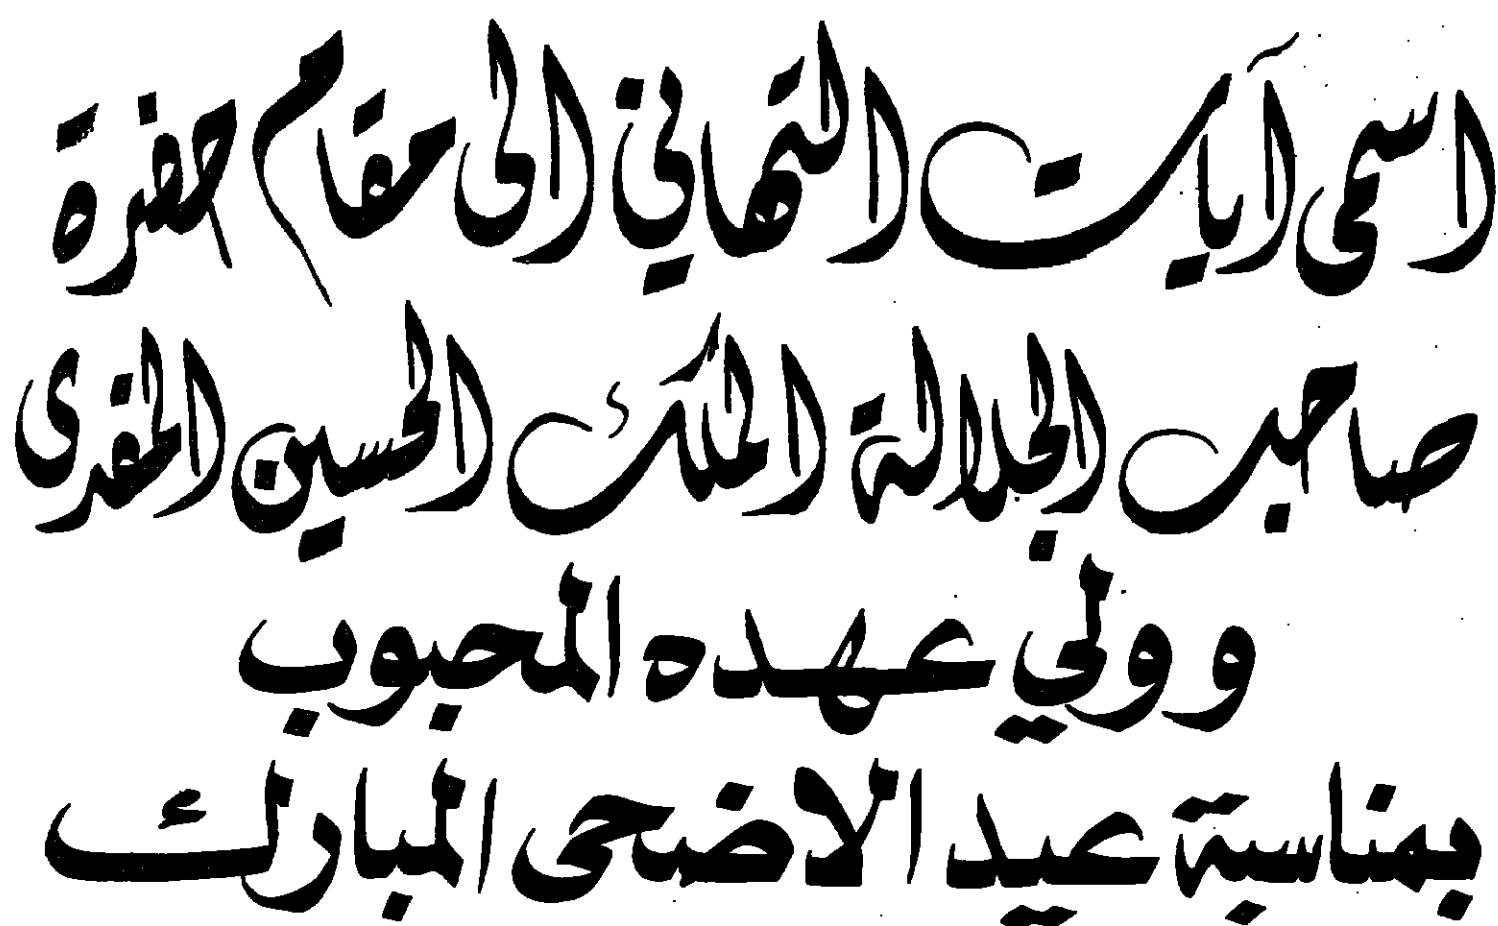 اسمى آيات التهاني الى مقام حضرة
صاحب الجلالة الملك الحسين المفدى
وولي عهده المحبوب
بمناسبة عيد الاضحى المبارك